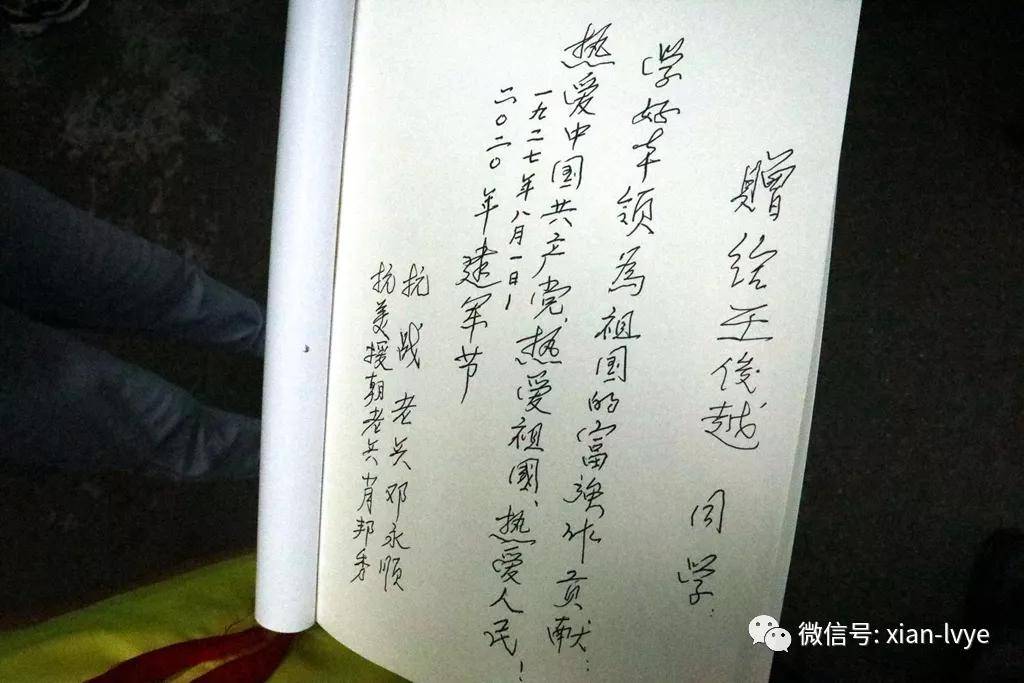 赠给王俊越 同学:
学好本领为祖国的富强作贡献:
热爱中国共产党、热爱祖国、热爱人民!
一九二七年八月一日1
二〇二〇年建军节
抗战老兵邓永顺
抗美援朝老兵肖邦秀
微信号: xian-lvye